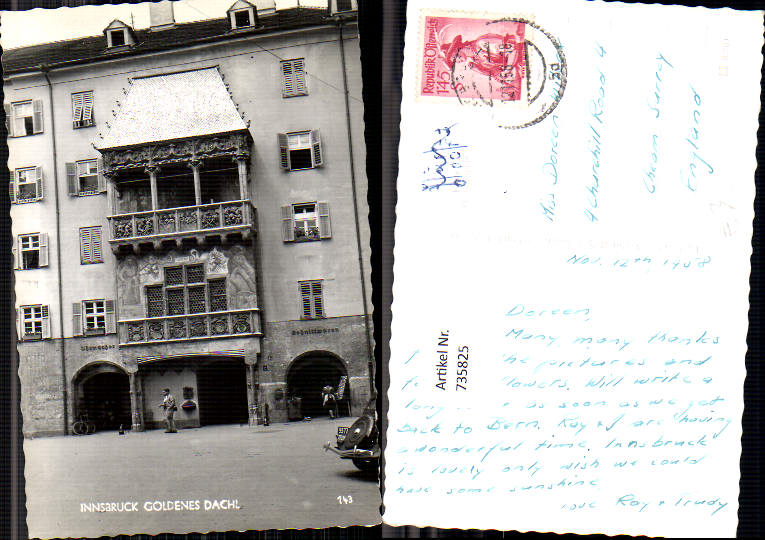 Uhrmacher
Schnittwaren
INNSBRUCK GOLDENES DACHL
143
Republik Österreich
1.45
Miss Doreen
4 Churchill Road 4
Cheam Surrey
England
Nov. 12th, 1958
Doreen,
Many, many thanks
pictures and
flowers. Will write a
long as soon as we get
back to Bern. Ray & I are having
a wonderful time. Innsbruck
is lovely only wish we could
have some sunshine
love Ray & Trudy
Artikel Nr.
735825